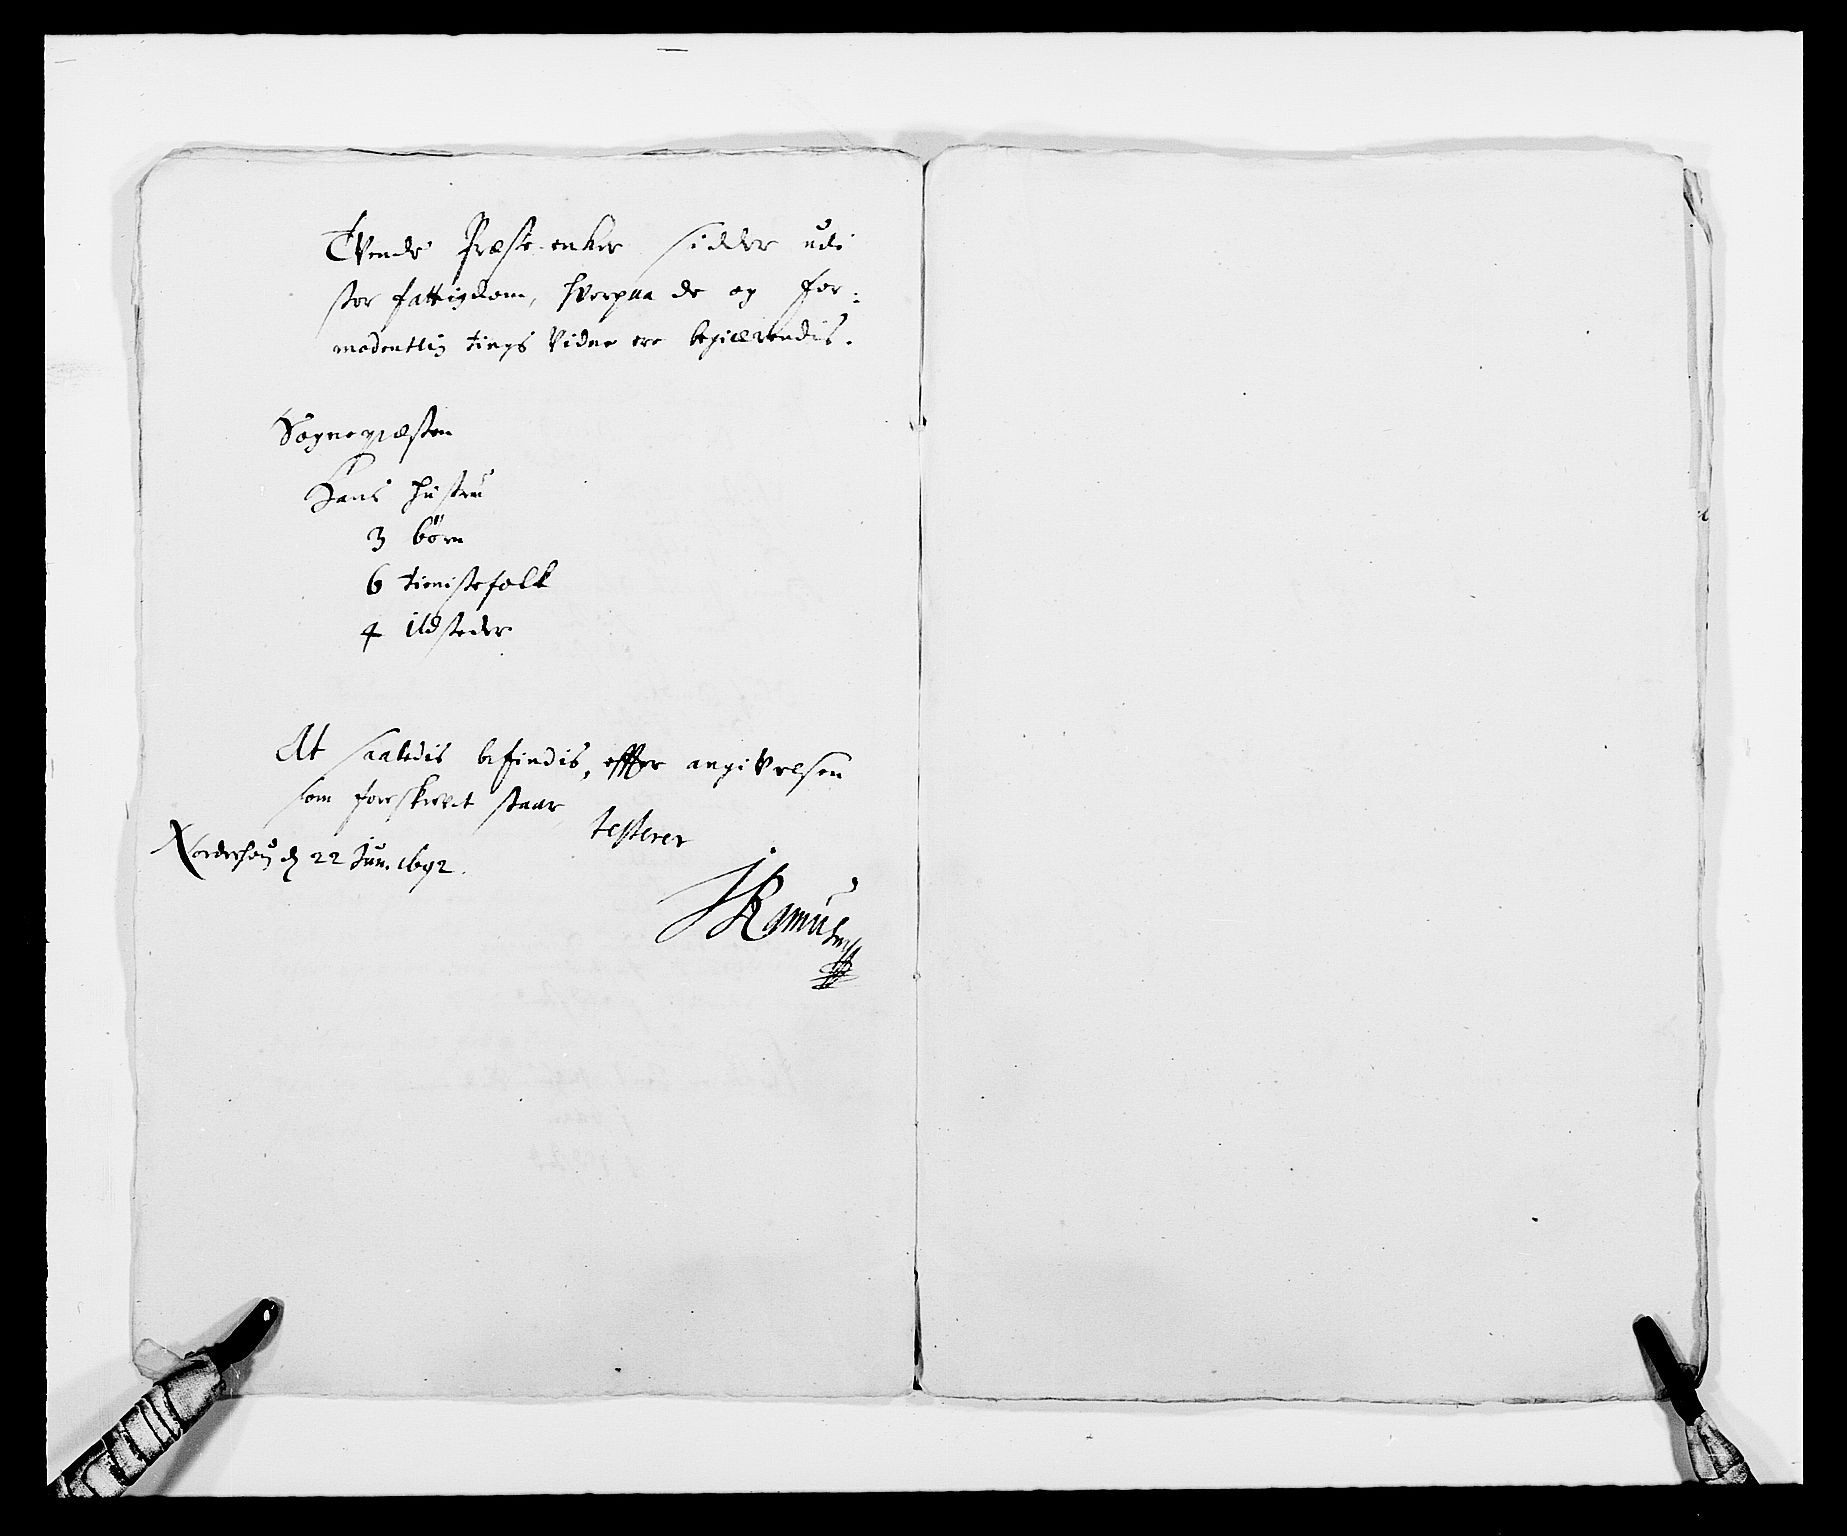 Tvende Præste-enker sidder udi
stor fattigdom, hvorpaa de og for:
modentlig tings Vidne ere begiærendis.
Sognepræsten
Hans hustru
3 börn
6 tienistefolk
4 ildsteder
At saaledis befindis, effter angivelsen
som forskrevet staar
testerer
Norderhoug d 22 Jun. 1692.
JRamus